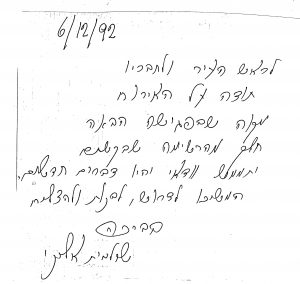 6/12/92
לראש העיר ולחבריו
תודה על האירוח
מקוה שבפגישה הבאה
חלק מהרשימה שבקשתם
יתממש וודאי יהיו דברים חדשים.
המשיכו לדרוש, לבנות ולהצליח
בברכה
שולמית אלוני